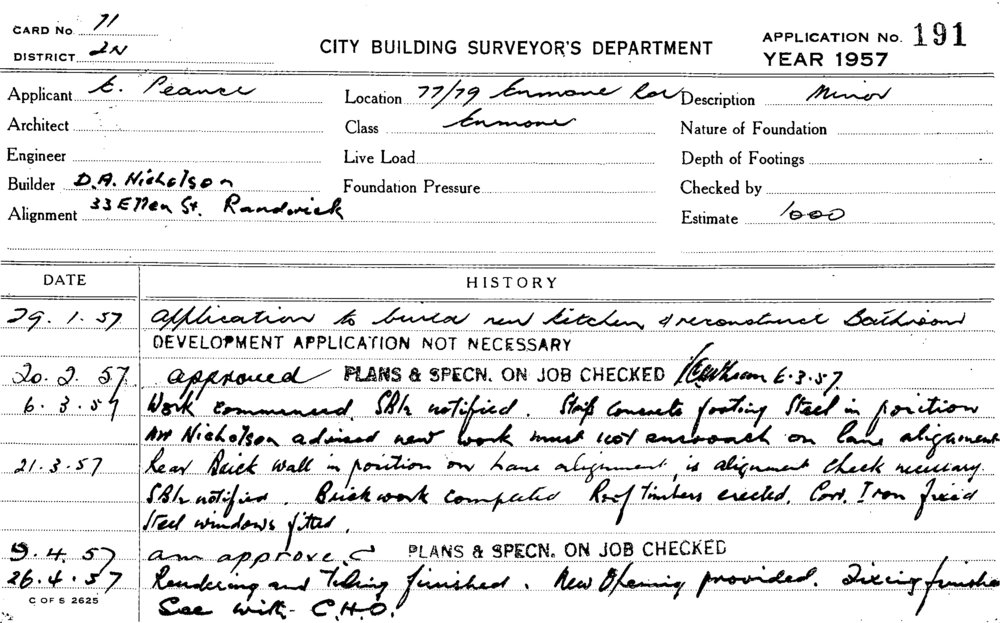 CARD No. 71
DISTRICT 2N
CITY BUILDING SURVEYOR'S DEPARTMENT
APPLICATION No. 191
YEAR 1957
Applicant E. Pearce
Location 77/79 Enmore Description Minor
Architect
Class Enmore
Nature of Foundation
Engineer
Live Load
Depth of Footings
Builder D.A. Nicholson
Foundation Pressure
Checked by
Alignment 33 Ellen St. Randwick
Estimate 1000
DATE HISTORY
29.1.57 Application to build new kitchen & reconstruct Bathroom
DEVELOPMENT APPLICATION NOT NECESSARY
20.2.57 approved PLANS & SPECN. ON JOB CHECKED 6.3.57
6.3.57 Work commenced. notified. Strip concrete footing Steel in position
Mr Nicholson advised new work must not encroach on lane alignment
21.3.57 Rear Brick wall in position on Lane alignment, is alignment check necessary.
notified. Brickwork completed Roof timbers erected. Corr. Iron fixed
Steel windows fitted.
9.4.57 am approved PLANS & SPECN. ON JOB CHECKED
26.4.57 Rendering and Tiling finished. New Opening provided. Fixing finishe
See with C.H.O.
C OF S 2625